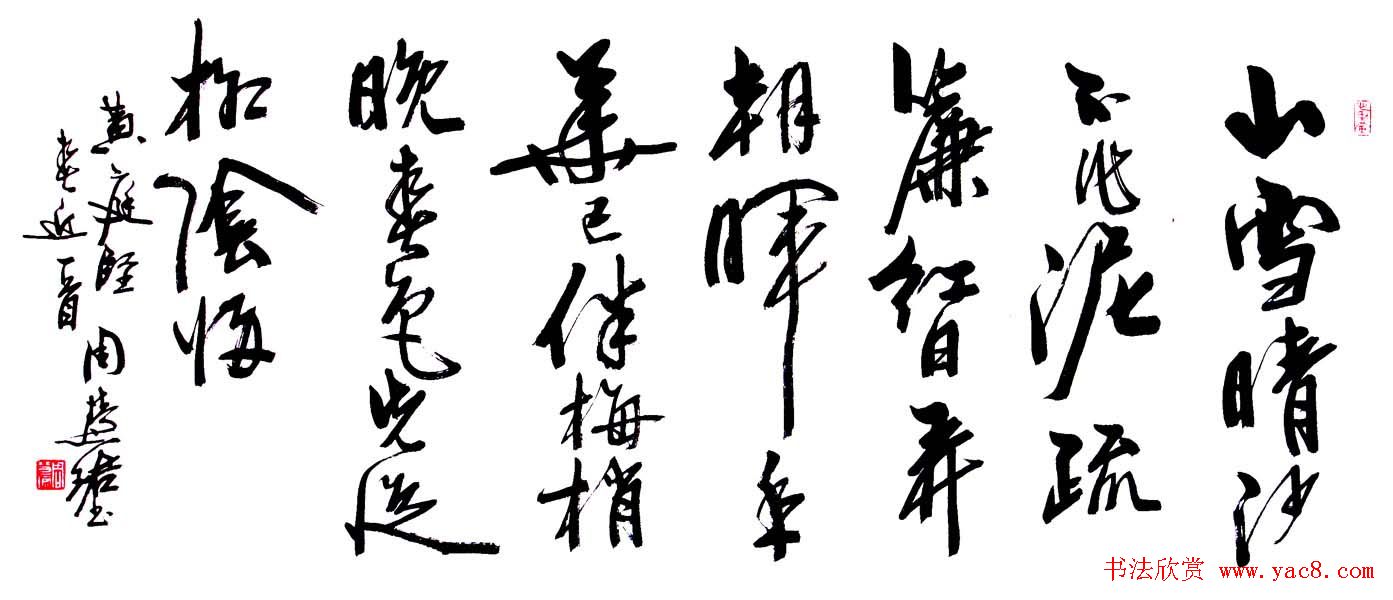 小雪晴沙
不作泥疏
簾紅日弄
朝暉年
華已伴梅梢
晚春色先從
柳陰歸
黃庭堅
春近一首
周慧珺书
书法欣赏 www.yac8.com